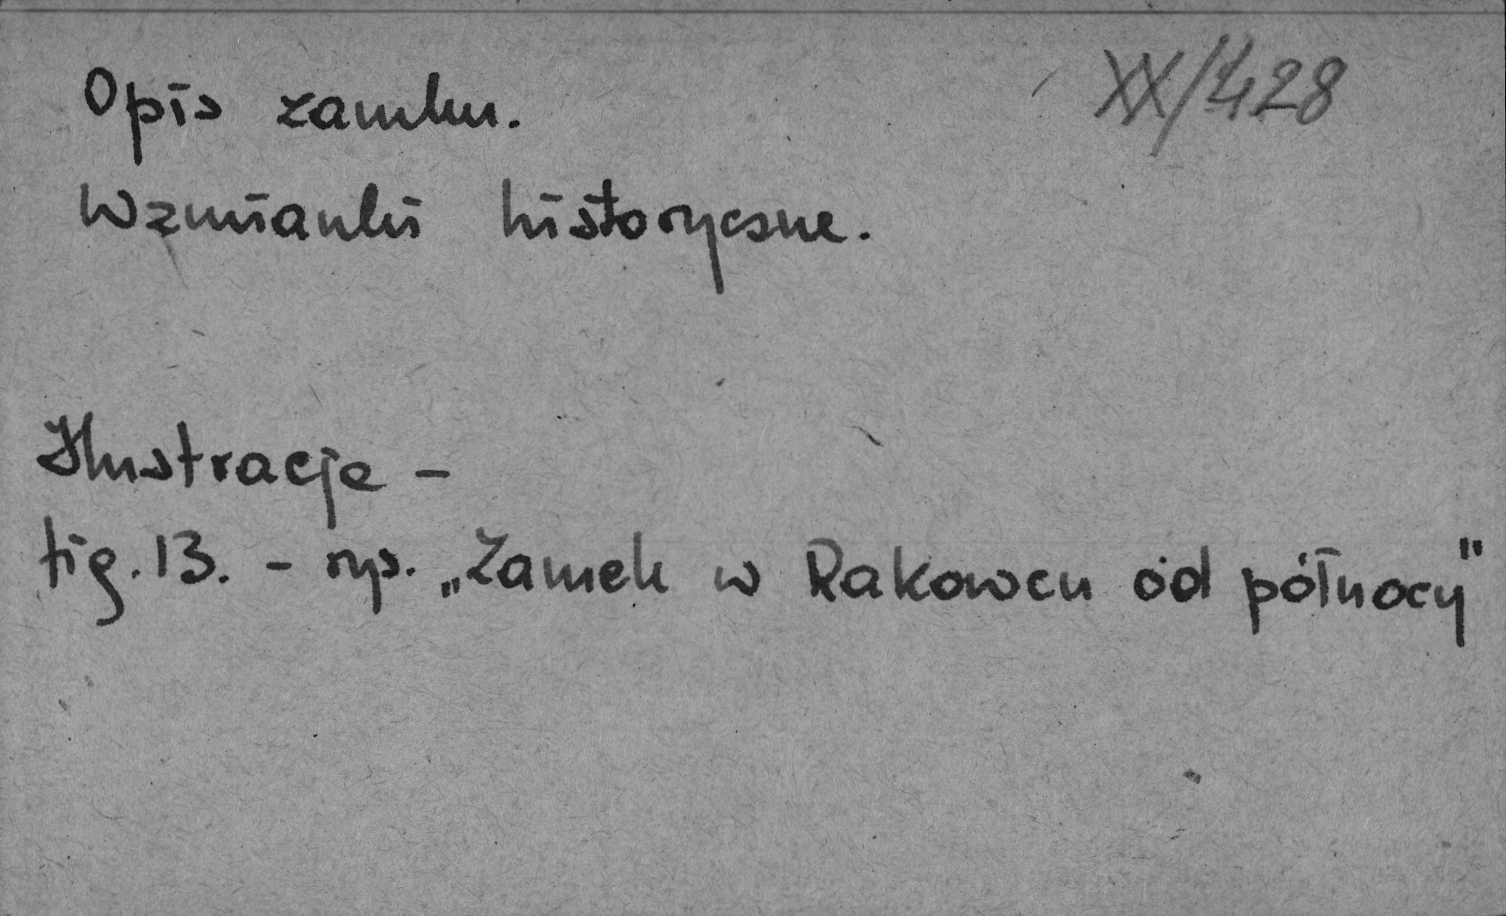 XX/428
Opis zamku.
Wzmianki historyczne.
Ilustracje -
fig. 13. - rys. „Zamek w Rakowcu od północy"